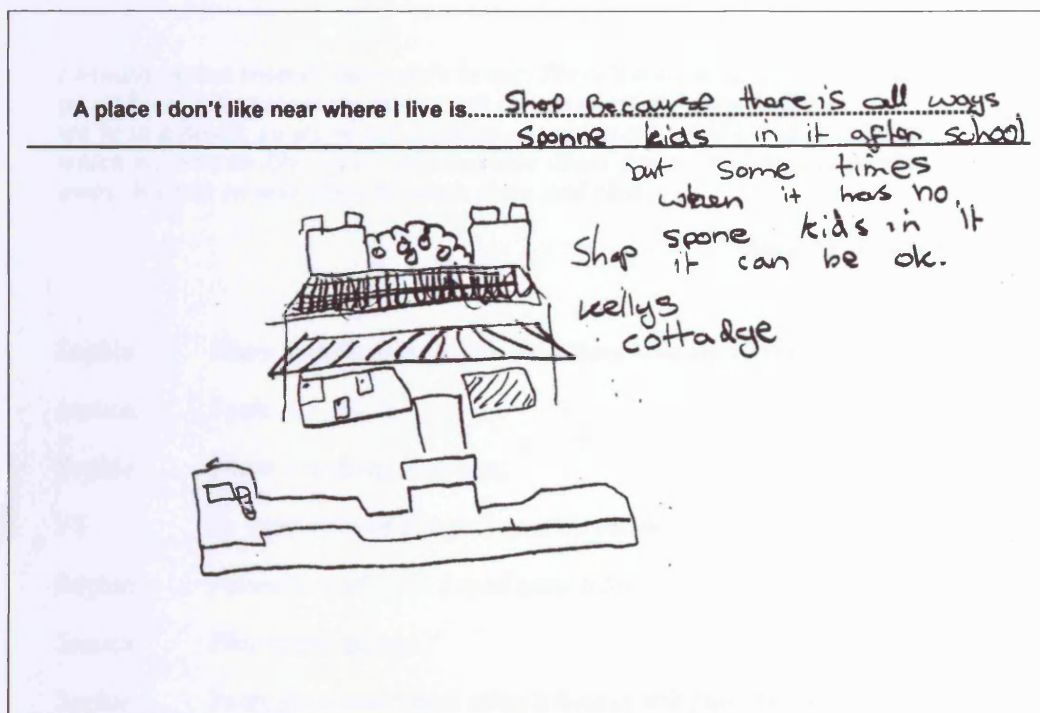 A place I don't like near where I live is.... Shop Because there is all ways
sponne kids in it after school
but some times
when it has no
spone kids in it
Shop it can be ok.
kellys
cottadge